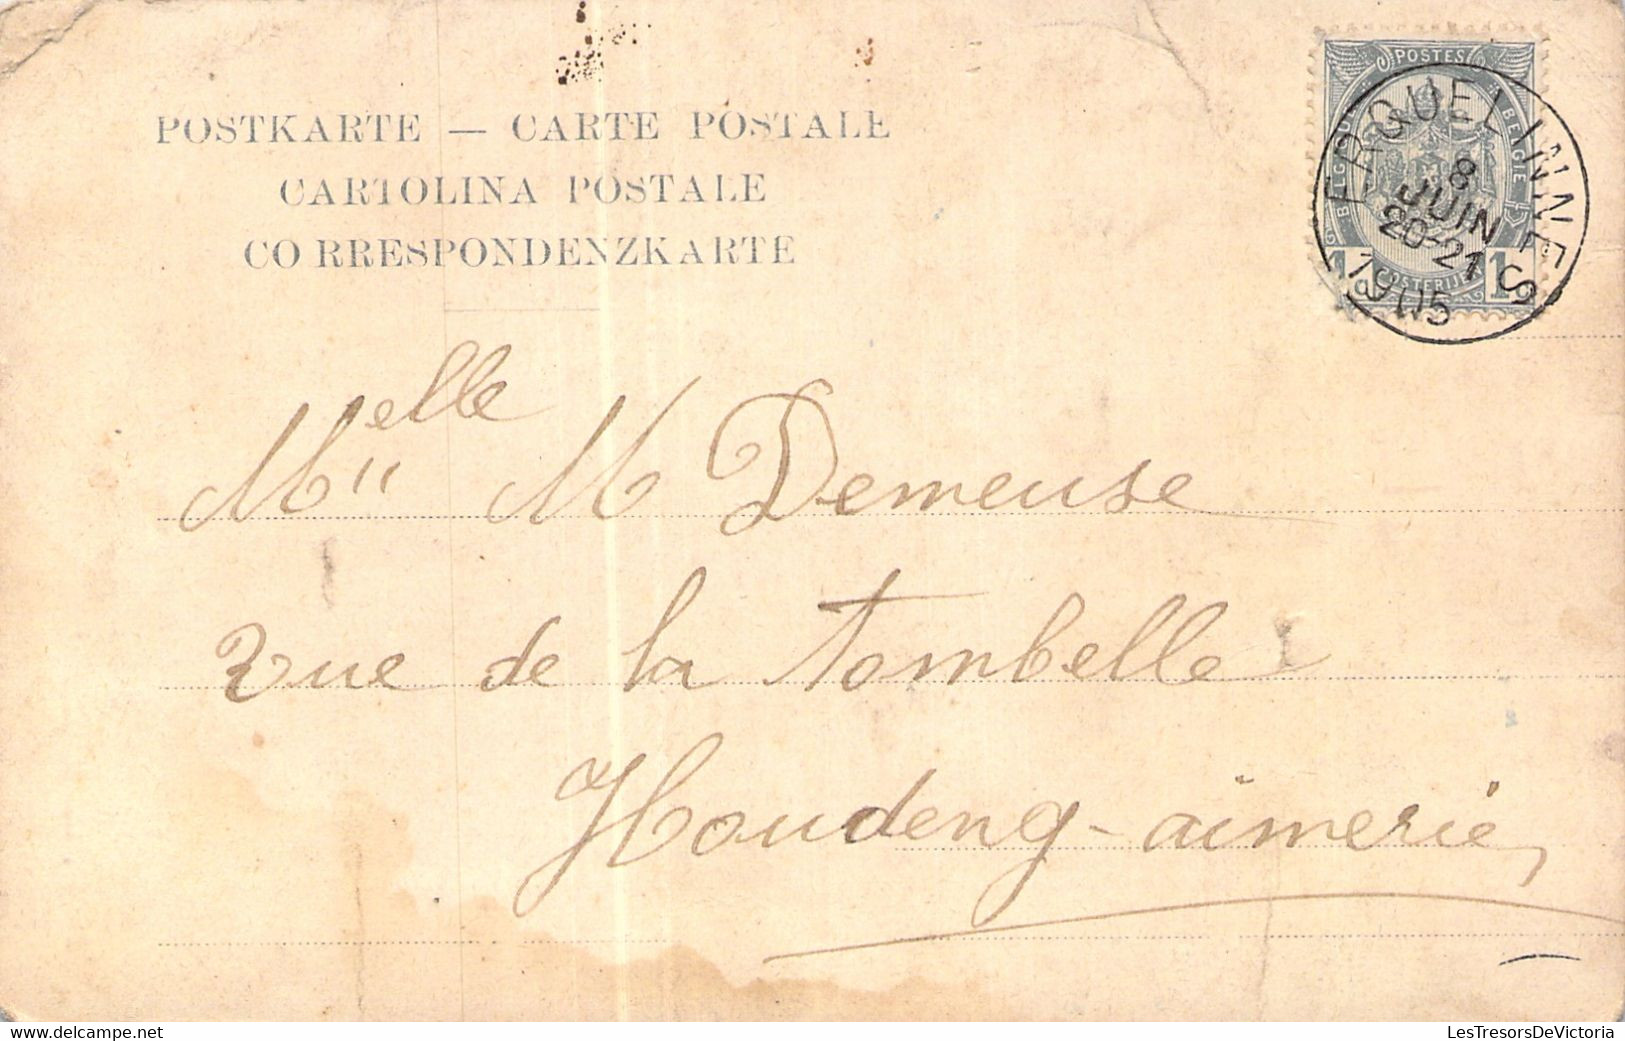 POSTKARTE — CARTE POSTALE
CARTOLINA POSTALE
CORRESPONDENZKARTE
POSTES
BELGIQUE
BELGIE
1 1
ERQUELINNES
8
JUIN
20-21
1905
Melle M Demeuse
rue de la Tombelle
Houdeng-aimerie,
www.delcampe.net
LesTresorsDeVictoria